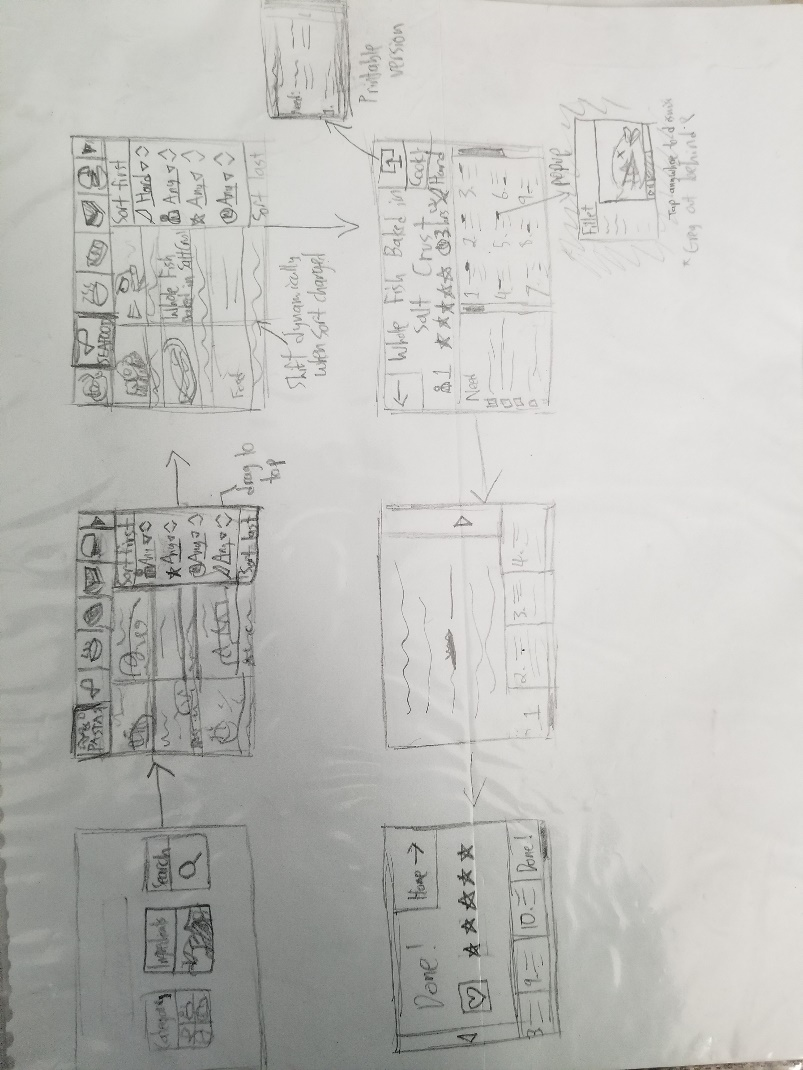 Categories
Ingredients
Search
PASTAS
Sort first
Any
Any
Any
Any
Sort last
drag to
top
SEAFOOD
Sort first
Hard
Any
Any
Any
Sort last
Whole Fish
Baked in Salt Crust
Food
Shift dynamically
when sort changed
Need:
1.
Printable
version
Whole Fish Baked in
Salt Crust
Cook!
1
3 hrs
Hard
Need
1
2
3.
4
5.
6
7
8
9
popup
Fillet
Tap anywhere to dismiss
* Grey out behind
1
2.
3.
4.
Done!
Home →
8
9.
10.
Done!